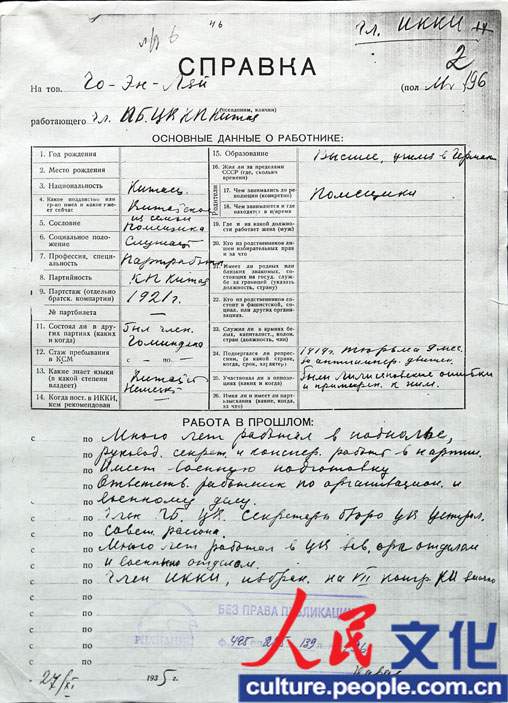 гл. ИККИ
СПРАВКА
2
На тов. Чо-Эн-Лай (пол М 196
(псевдоним, клички)
работающего чл. ПБ ЦК КП Китая
ОСНОВНЫЕ ДАННЫЕ О РАБОТНИКЕ:
1. Год рождения
2. Место рождения
3. Национальность Китаец
4. Какое подданство или гр-во имел и какое имеет сейчас Китайское
5. Сословие из семьи помещика
6. Социальное положение Служащ
7. Профессия, специальность Партработн
8. Партийность КП Китая
9. Партстаж (отдельно братск. компартии) 1921 г.
№ партбилета
11. Состоял ли в других партиях (каких и когда) Был член Гоминдана
12. Стаж пребывания в КСМ с — по —
13. Какие знает языки (в какой степени владеет) Китайск Немецк
14. Когда пост. в ИККИ, кем рекомендован
15. Образование Высшее, учился в Герман
16. Жил ли за пределами СССР (где, сколько времени)
Родители
17. Чем занимались до революции (конкретно) Помещики
18. Чем занимаются и где находятся в н/время
19. Где и на какой должности работает жена (муж)
20. Кто из родственников лишен избирательных прав и за что
21. Имеет ли родных или близких знакомых, состоящих на госуд. службе за границей (указать должность, страну)
22. Кто из родственников состоит в фашистской, социал. или других организациях.
23. Служил ли в армиях белых, капиталист., колон. стран (должность, чин)
24. Подвергался ли репрессиям, (в какой стране, когда, срок, характер) 1919 г. тюрьма 7 мес. за антиимпер. движен.
25. Участвовал ли в оппозициях (каких и когда) были лилисановские ошибки и примирен. к ним.
26. Имел ли и имеет ли партвзыскания (какие, когда, за что)
РАБОТА В ПРОШЛОМ:
с по Много лет работал в подполье,
с по руковод. секрет. и конспир. работ в партии.
с по Имеет военную подготовку
с по Ответств. работник по организацион. и
с по военному делу.
с по Член ПБ ЦК. Секретарь бюро ЦК централ.
с по Совет. района.
с по Много лет работал в ЦК зав. орг отделом
с по и военным отделом.
с по Член ИККИ, избран. на VII конгр. КИ
с по
с по
с по
БЕЗ ПРАВА ПУБЛИКАЦИИ
27/XI 1935 г.
人民文化
culture.people.com.cn